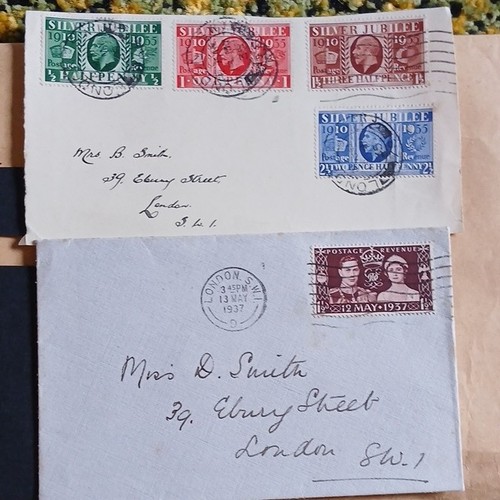 SILVER JUBILEE
1910 1935
Postage Rev
½ HALFPENNY ½
SILVER JUBILEE
1910
1 1
SILVER JUBILEE
1910
Postage Rev
1½ THREE HALFPENCE 1½
SILVER JUBILEE
1910 1935
Postage Rev
2½ TWO PENCE HALFPENNY 2½
LONDON
Mrs B. Smith,
39, Ebury Street,
London.
S.W.1.
POSTAGE REVENUE
12 MAY · 1937
LONDON, S.W.1.
3 45 PM
13 MAY
1937
Miss D. Smith
39, Ebury Street
London
SW.1